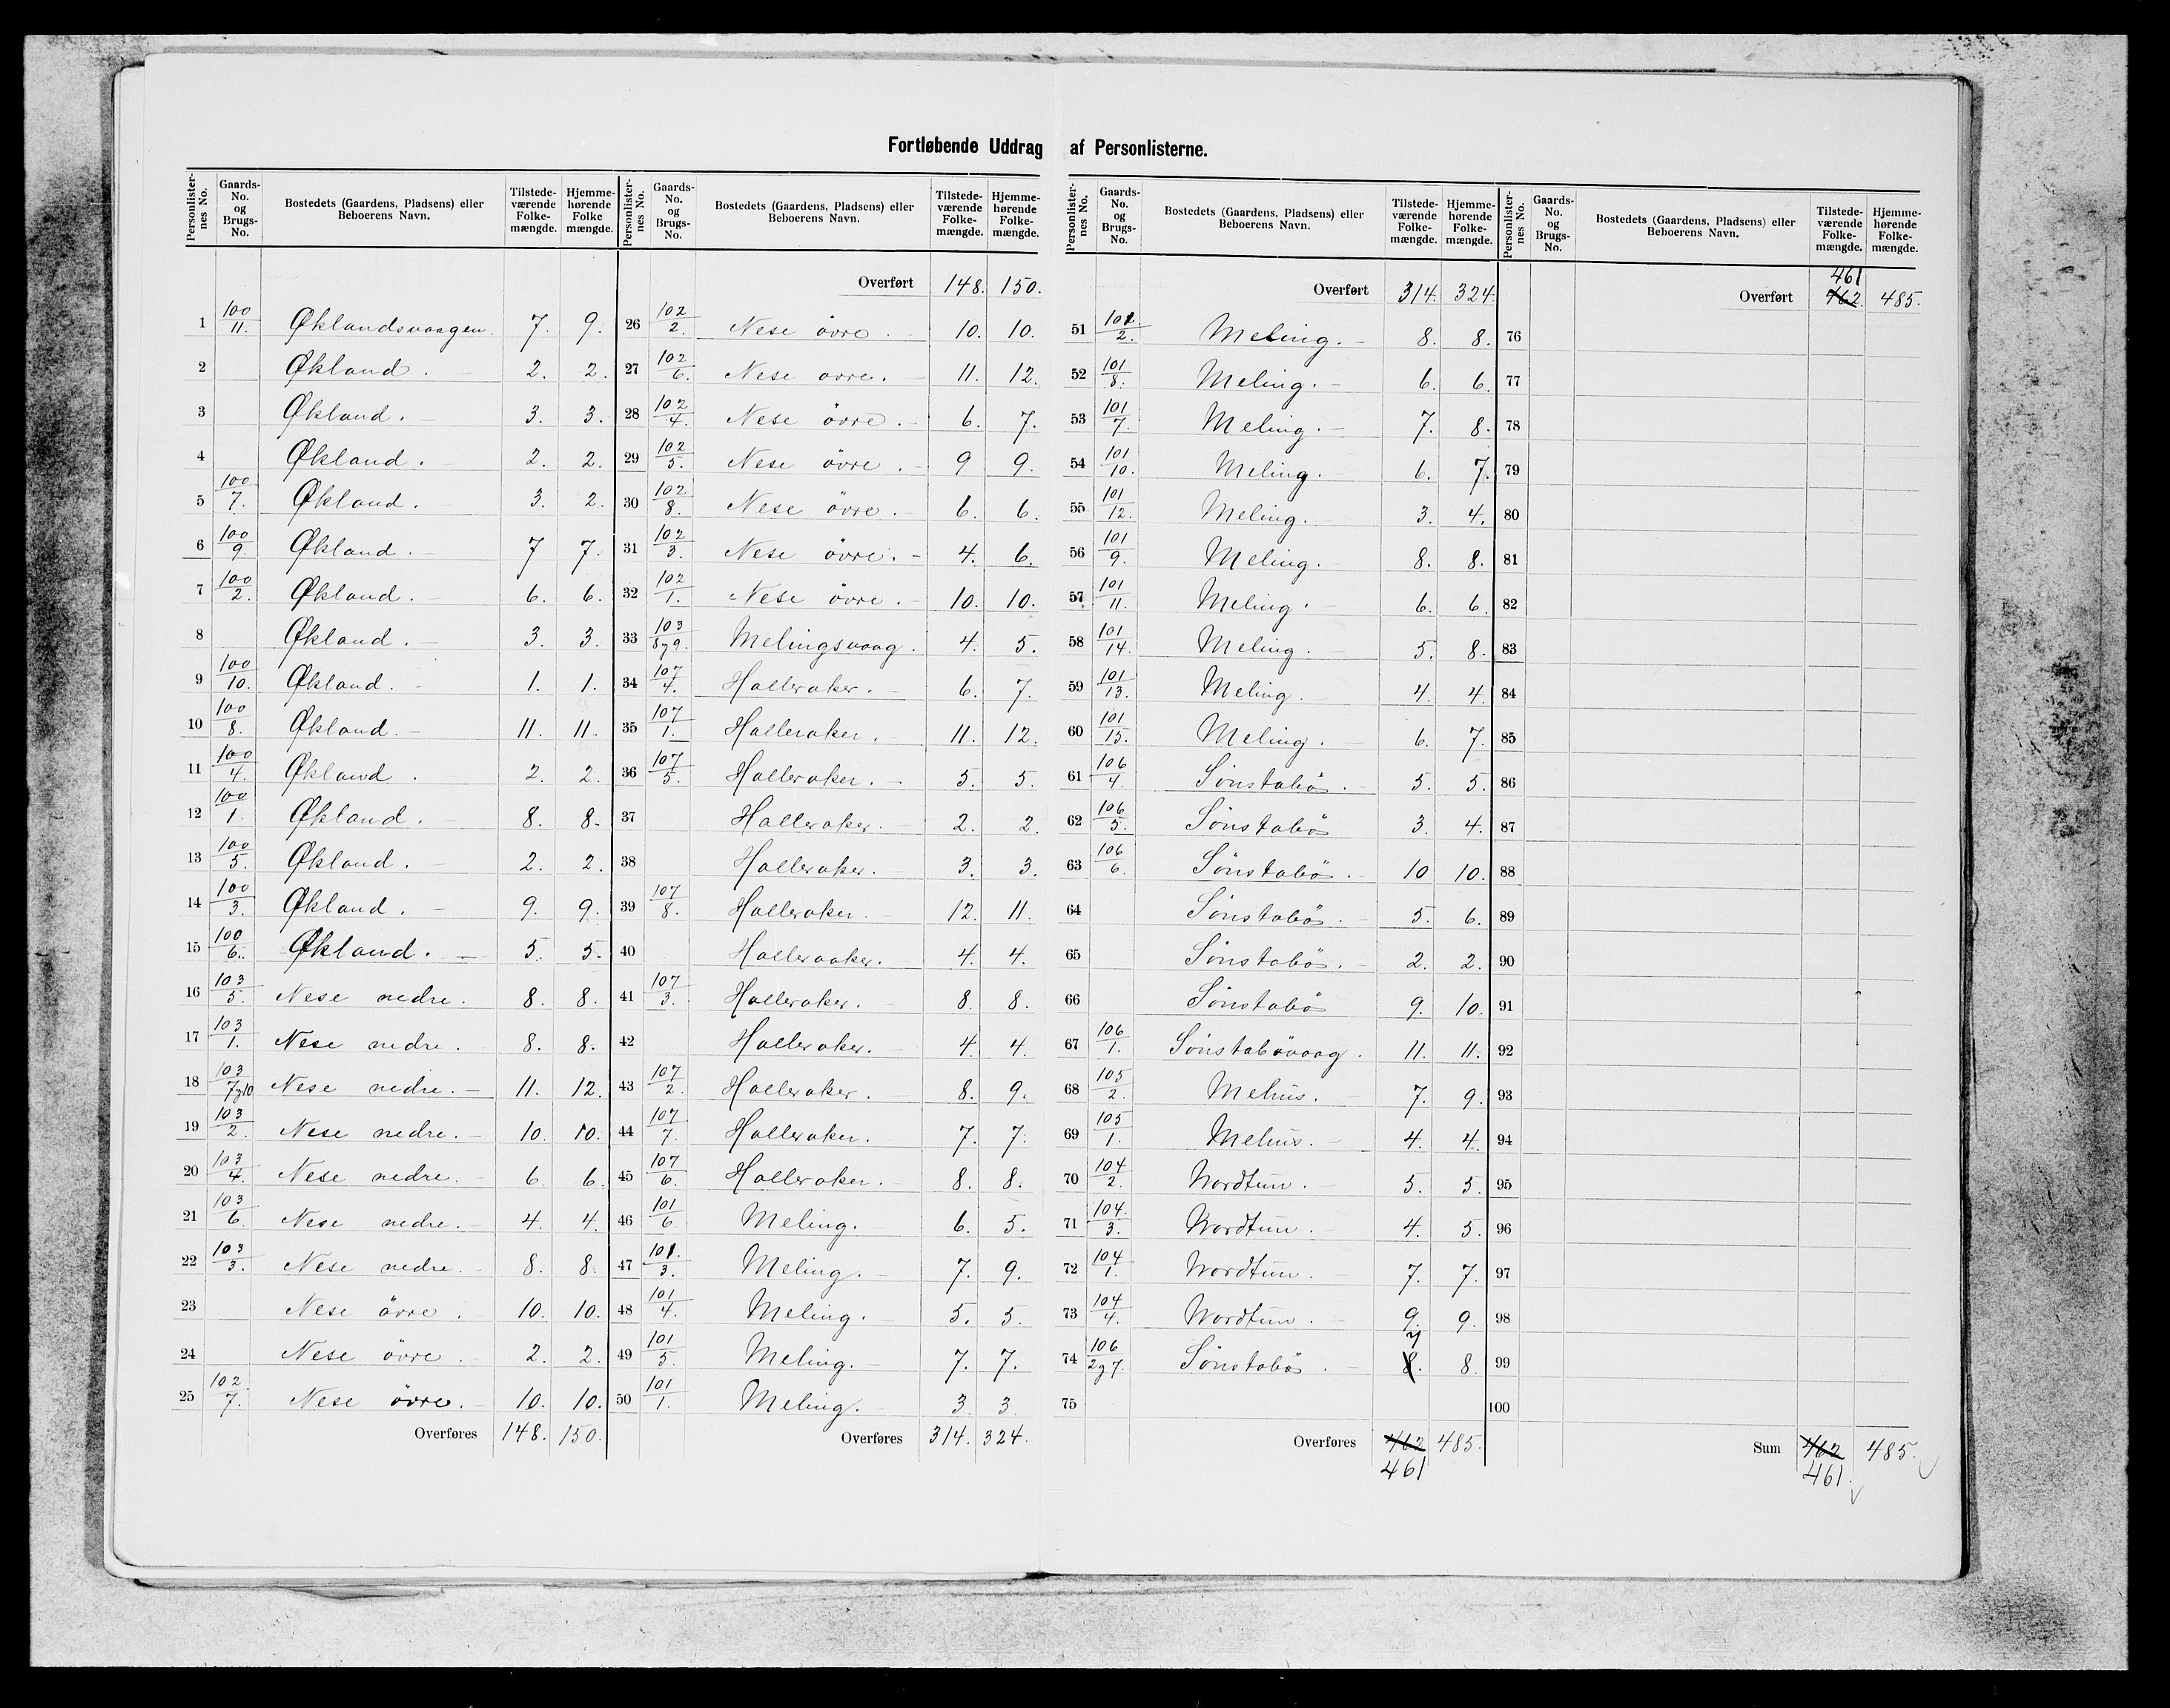 Fortløbende Uddrag af Personlisterne.
Personlisternes No. Gaards-No. og Brugs-No. Bostedets (Gaardens, Pladsens) eller Beboerens Navn. Tilstedeværende Folkemængde. Hjemmehørende Folkemængde.
1 100/11. Øklandsvaagen. 7. 9.
2 Økland. 2. 2.
3 Økland. 3. 3.
4 Økland. 2. 2.
5 100/7. Økland. 3. 2.
6 100/9. Økland. 7 7.
7 100/2. Økland. 6. 6.
8 Økland. 3. 3.
9 100/10. Økland. 1. 1.
10 100/8. Økland. 11. 11.
11 100/4. Økland. 2. 2.
12 100/1. Økland. 8. 8.
13 100/5. Økland. 2. 2.
14 100/3. Økland. 9. 9.
15 100/6. Økland. 5. 5.
16 103/5. Nese nedre. 8. 8.
17 103/1. Nese nedre. 8. 8.
18 103/7 og 10 Nese nedre. 11. 12.
19 103/2. Nese nedre. 10. 10.
20 103/4. Nese nedre. 6. 6.
21 103/6. Nese nedre. 4. 4.
22 103/3. Nese nedre. 8. 8.
23 Nese övre. 10. 10.
24 Nese övre. 2. 2.
25 102/7. Nese övre. 10. 10.
Overføres 148. 150.
Personlisternes No. Gaards-No. og Brugs-No. Bostedets (Gaardens, Pladsens) eller Beboerens Navn. Tilstedeværende Folkemængde. Hjemmehørende Folkemængde.
Overført 148. 150.
26 102/2. Nese övre. 10. 10.
27 102/6. Nese ovre. 11. 12.
28 102/4. Nese övre. 6. 7.
29 102/5. Nese övre. 9 9.
30 102/8. Nese övre. 6. 6.
31 102/3. Nese övre. 4. 6.
32 102/1. Nese övre. 10. 10.
33 103/8 og 9. Melingsvaag. 4. 5.
34 107/4. Halleraker. 6. 7.
35 107/1. Halleraker. 11. 12.
36 107/5. Halleraker. 5. 5.
37 Halleraker. 2. 2.
38 Halleraker. 3. 3.
39 107/8. Halleraker 12. 11.
40 Halleraaker. 4. 4.
41 107/3. Halleraker. 8. 8.
42 Halleraker. 4. 4.
43 107/2. Halleraker. 8. 9.
44 107/7. Halleraker. 7. 7.
45 107/6. Halleraker. 8. 8.
46 101/6 Meling. 6. 5.
47 101/3. Meling. 7. 9.
48 101/4. Meling. 5. 5.
49 101/5. Meling. 7. 7.
50 101/1. Meling. 3. 3
Overføres 314. 324.
Personlisternes No. Gaards-No. og Brugs-No. Bostedets (Gaardens, Pladsens) eller Beboerens Navn. Tilstedeværende Folkemængde. Hjemmehørende Folkemængde.
Overført 314. 324.
51 101/2. Meling. 8. 8.
52 101/8. Meling. 6. 6.
53 101/7. Meling. 7. 8.
54 101/10. Meling. 6. 7.
55 101/12. Meling. 3. 4.
56 101/9. Meling. 8. 8.
57 101/11. Meling. 6. 6.
58 101/14. Meling. 5. 8.
59 101/13. Meling. 4. 4.
60 101/15. Meling. 6. 7.
61 106/4. Sönstabö. 5. 5.
62 106/5. Sönstabö 3. 4.
63 106/6. Sönstabö. 10 10.
64 Sönstabö. 5. 6.
65 Sönstabö. 2. 2.
66 Sönstabö 9. 10.
67 106/1. Sönstabövaag. 11. 11.
68 105/2. Mehus. 7. 9.
69 105/1. Mehus. 4. 4.
70 104/2. Nordtun. 5. 5.
71 104/3. Nordtun. 4. 5.
72 104/1. Nordtun. 7. 7.
73 104/4. Nordtun. 9. 9.
74 106/2 og 7. Sönstabö. 8. 7 8.
75
Overføres 462 485.
461
Personlisternes No. Gaards-No. og Brugs-No. Bostedets (Gaardens, Pladsens) eller Beboerens Navn. Tilstedeværende Folkemængde. Hjemmehørende Folkemængde.
461
Overført 462. 485.
76
77
78
79
80
81
82
83
84
85
86
87
88
89
90
91
92
93
94
95
96
97
98
99
100
Sum 462 485.
461.